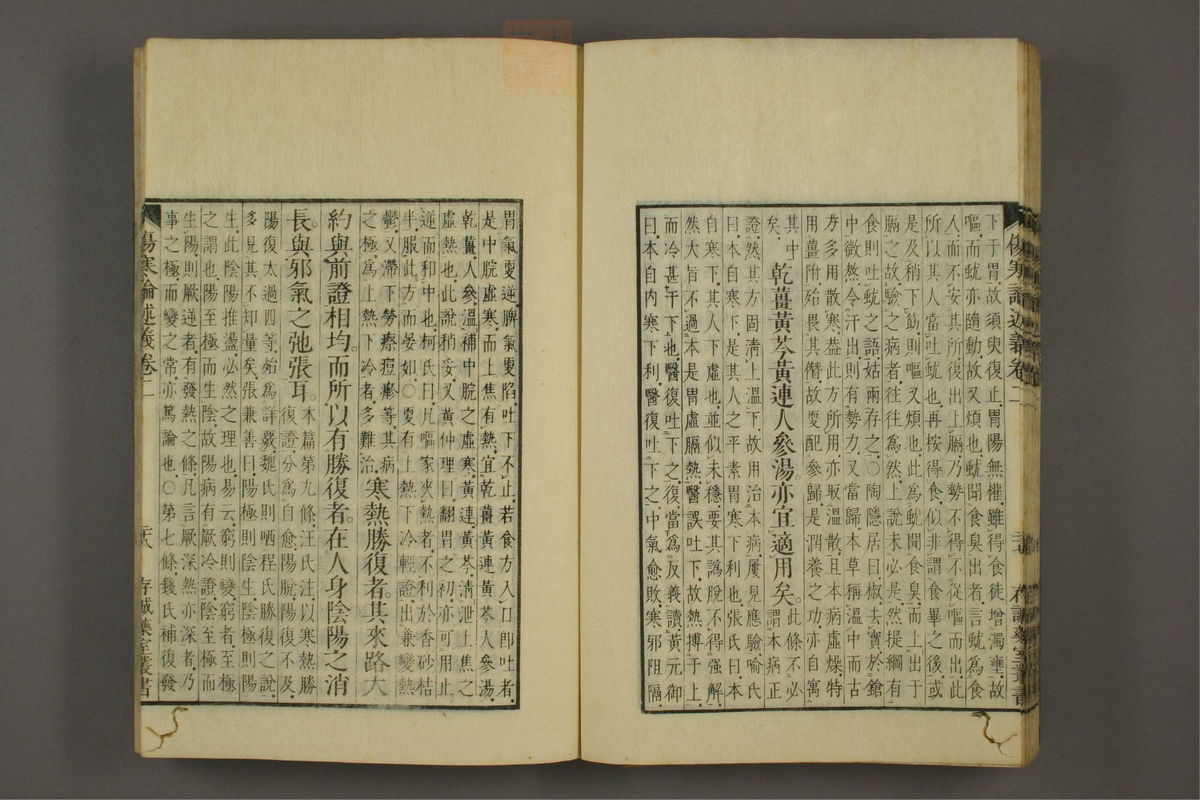 下于胃故須臾復止胃陽無權雖得食徒增濁壅故
嘔而蚘亦隨動故又煩也蚘聞食臭出者言蚘為食
入而不安其所復出上膈乃勢不得不從嘔而出此
所以其人當吐蚘也再桉得食似非謂食畢之後或
是及稍下筯則嘔又煩也此為蚘聞食臭而上出于
膈之故驗之病者往往為然上說未必是然提綱有
食則吐蚘之語姑兩存之○陶隱居曰椒去實於鎗
中微熬令汗出則有勢力又當歸本草稱溫中而古
方多用散寒蓋此方所用亦取溫散且本病虛燥特
用薑附殆畏其僭故更配參歸是潤養之功亦自寓
其中
乾薑黃芩黃連人參湯亦宜適用矣此條不必
矣
謂本病正
證然其方固清上溫下故用治本病屢見應驗喻氏
曰本自寒下是其人之平素胃寒下利也張氏曰本
自寒下其人下虛也並似未穩要其譌脫不得强解
然大旨不過本是胃虛膈熱醫誤吐下故熱搏于上
而冷甚于下也醫復吐下之復當為反義讀黃元御
曰本自內寒下利醫復吐下之中氣愈敗寒邪阻隔
傷寒論述義卷二
存誠藥室叢書
胃氣更逆脾氣更陷吐下不止若食方入口即吐者
是中脘虛寒而上焦有熱宜乾薑黃連黃芩人參湯
乾薑人參溫補中脘之虛寒黃連黃芩清泄上焦之
虛熱也此說稍妥又黃仲理曰翻胃之初亦可用止
逆而和中也柯氏曰凡嘔家夾熱者不利於香砂桔
半服此方而晏如○更有上熱下冷輕證出兼變熱
鬱又滯下勞瘵痘瘮等其病
之極為上熱下冷者多難治
寒熱勝復者其來路大
約與前證相均而所以有勝復者在人身陰陽之消
長與邪氣之弛張耳本篇第九條汪氏注以寒熱勝
復證分為自愈陽脫陽復不及
陽復太過四等始為詳覈魏氏則哂程氏勝復之說
多見其不知量矣張兼善曰陽極則陰生陰極則陽
生此陰陽推盪必然之理也易云窮則變窮者至極
之謂也陽至極而生陰故陽病有厥冷證陰至極而
生陽則厥逆者有發熱之條凡言厥深熱亦深者乃
事之極而變之常亦篤論也○第七條錢氏補復發
傷寒論述義卷二
二六
存誠藥室叢書